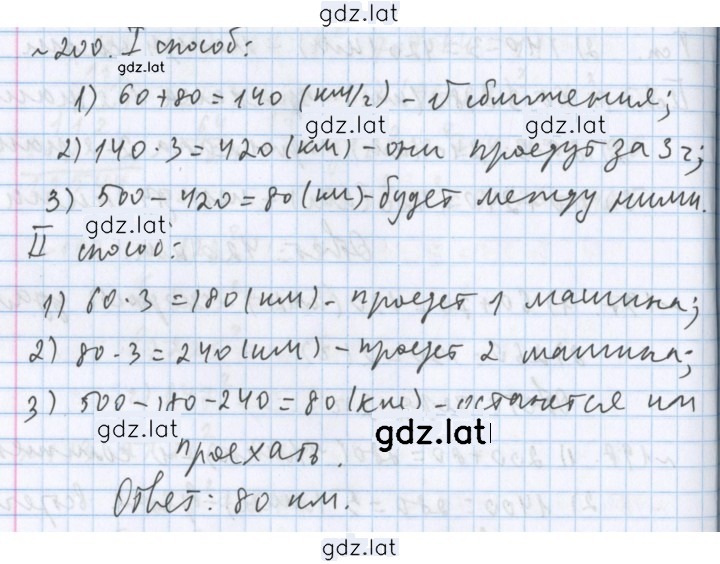 gdz.lat
№200. I способ:
gdz.lat
1) 60+80=140 (км/г) – V сближения;
gdz.lat
2) 140·3=420 (км) – они проедут за 3 г;
3) 500–420=80 (км) – будет между ними.
gdz.lat
II способ:
1) 60·3=180 (км) – проедет 1 машина;
2) 80·3=240 (км) – проедет 2 машина;
3) 500–180–240=80 (км) – останется им
gdz.lat gdz.lat
проехать.
Ответ: 80 км.
gdz.lat